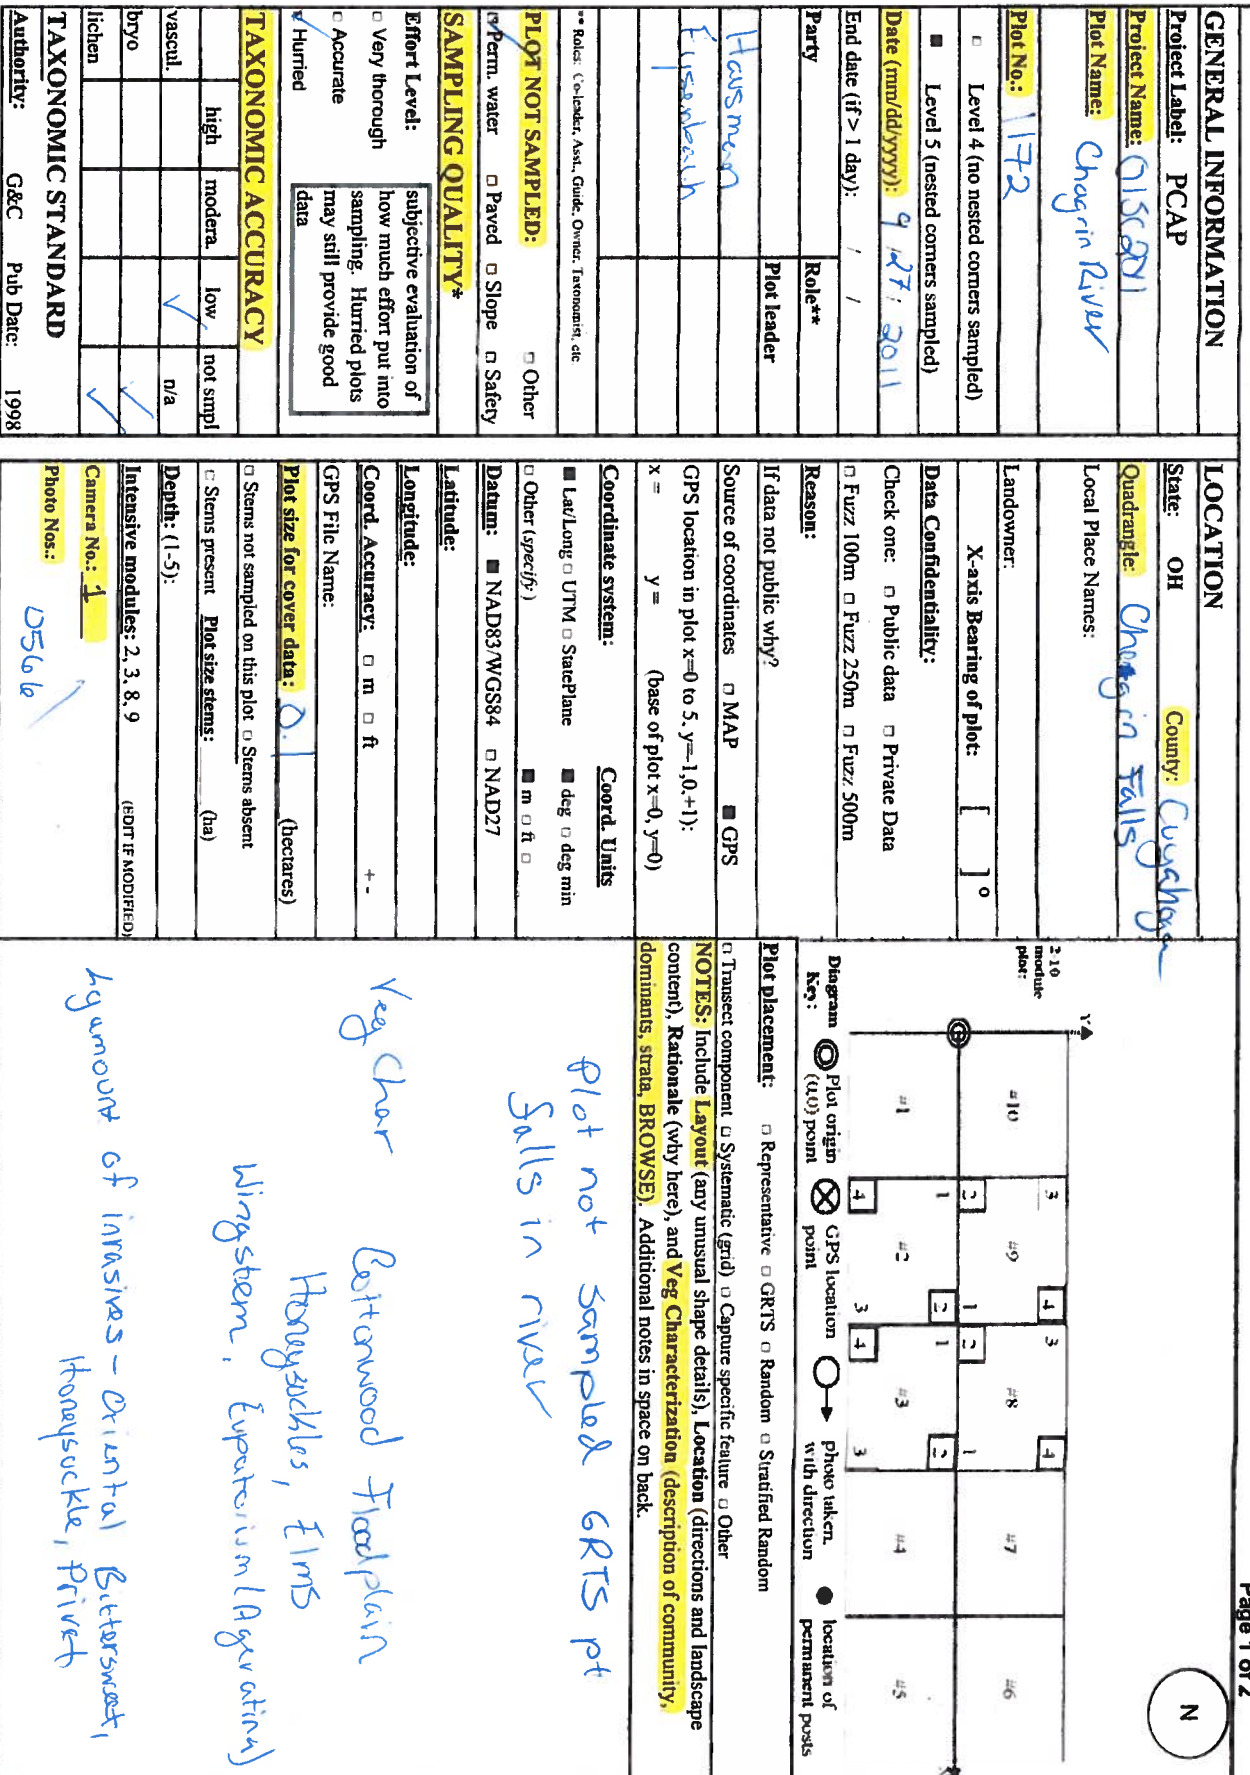 Page 1 of 2
GENERAL INFORMATION
Project Label: PCAP
Project Name:
Plot Name: Chagrin River
Plot No.: 1172
□ Level 4 (no nested corners sampled)
■ Level 5 (nested corners sampled)
Date (mm/dd/yyyy): 9 / 27 / 2011
End date (if > 1 day): / /
Party Role**
Plot leader
Hausman
Eysenbach
** Roles: Co-leader, Asst, Guide, Owner, Taxonomist, etc
PLOT NOT SAMPLED: □ Other
☑ Perm. water □ Paved □ Slope □ Safety
SAMPLING QUALITY*
Effort Level:
□ Very thorough
□ Accurate
☑ Hurried
subjective evaluation of
how much effort put into
sampling. Hurried plots
may still provide good
data
TAXONOMIC ACCURACY
high modera. low not smpl
vascul. ✓ n/a
bryo ✓
lichen ✓
TAXONOMIC STANDARD
Authority: G&C Pub Date: 1998
LOCATION
State: OH County: Cuyahoga
Quadrangle: Chagrin Falls
Local Place Names:
Landowner:
X-axis Bearing of plot: [ ] °
Data Confidentiality:
Check one: □ Public data □ Private Data
□ Fuzz 100m □ Fuzz 250m □ Fuzz 500m
Reason:
If data not public why?
Source of coordinates □ MAP ■ GPS
GPS location in plot x=0 to 5, y=-1,0,+1):
x = y = (base of plot x=0, y=0)
Coordinate system: Coord. Units
■ Lat/Long □ UTM □ StatePlane ■ deg □ deg min
□ Other (specify) ■ m □ ft □
Datum: ■ NAD83/WGS84 □ NAD27
Latitude:
Longitude:
Coord. Accuracy: □ m □ ft + -
GPS File Name:
Plot size for cover data: 0.1 (hectares)
□ Stems not sampled on this plot □ Stems absent
□ Stems present Plot size stems: (ha)
Depth: (1-5):
Intensive modules: 2, 3, 8, 9 (EDIT IF MODIFIED)
Camera No.: 1
Photo Nos.: 0566
N
2·10
module
plot:
Y
#10 #9 #8 #7 #6
3 4 3 4
2 1 2 1
1 2 1 2
4 3 4 3
#1 #2 #3 #4 #5
Diagram Key: Plot origin (0,0) point GPS location point photo taken, with direction location of permanent posts
Plot placement: □ Representative □ GRTS □ Random □ Stratified Random
□ Transect component □ Systematic (grid) □ Capture specific feature □ Other
NOTES: Include Layout (any unusual shape details), Location (directions and landscape
content), Rationale (why here), and Veg Characterization (description of community,
dominants, strata, BROWSE). Additional notes in space on back.
Plot not sampled GRTS pt
falls in river
Veg Char Cottonwood Floodplain
Honeysuckles, Elms
Wingstem, Eupatorium (Ageratina)
Lg amount of invasives - Oriental Bittersweet,
Honeysuckle, Privet